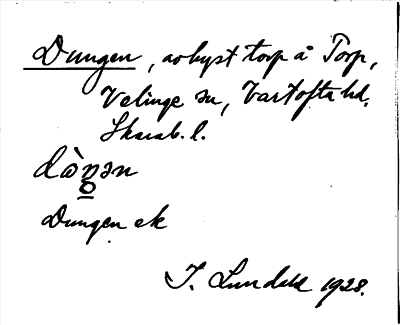 Dungen, avhyst torp å Torp,
Velinge sn, Vartofta hd,
Skarab. l.
Dungen ek
J. Lundahl 1928.